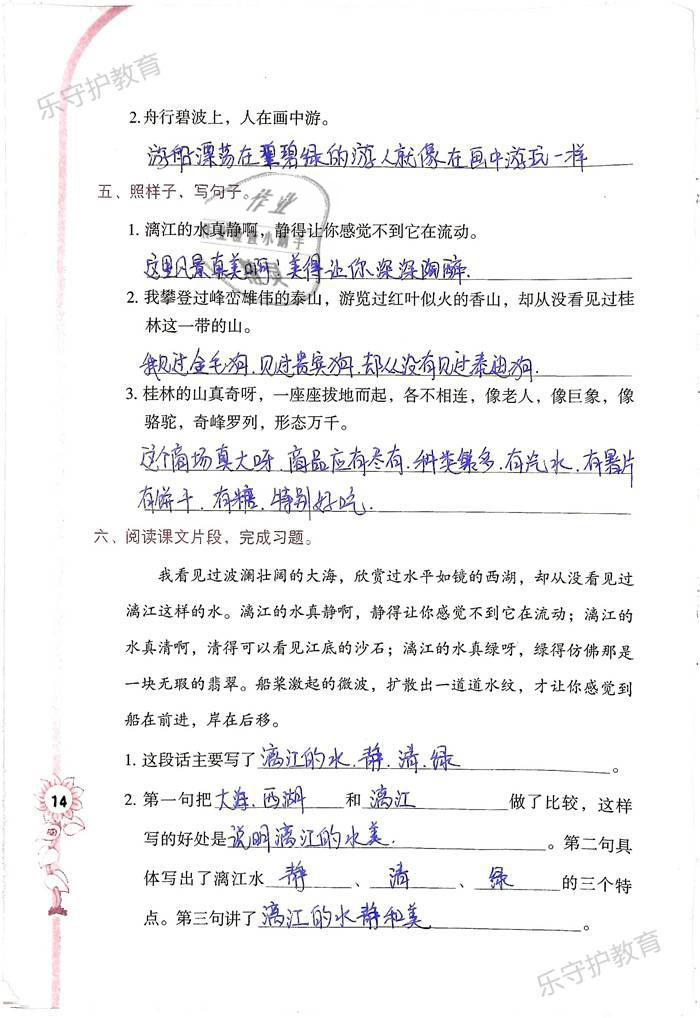 乐守护教育
2. 舟行碧波上，人在画中游。
游船漂荡在碧绿的游人就像在画中游玩一样
五、照样子，写句子。
作业
1. 漓江的水真静啊，静得让你感觉不到它在流动。
小助手
这里风景真美啊，美得让你深深陶醉.
2. 我攀登过峰峦雄伟的泰山，游览过红叶似火的香山，却从没看见过桂
林这一带的山。
我见过金毛狗.见过贵宾狗.却从没有见过泰迪狗.
3. 桂林的山真奇呀，一座座拔地而起，各不相连，像老人，像巨象，像
骆驼，奇峰罗列，形态万千。
这个商场真大呀.商品应有尽有.种类繁多.有汽水.有薯片
有饼干.有糖.特别好吃.
六、阅读课文片段，完成习题。
我看见过波澜壮阔的大海，欣赏过水平如镜的西湖，却从没看见过
漓江这样的水。漓江的水真静啊，静得让你感觉不到它在流动；漓江的
水真清啊，清得可以看见江底的沙石；漓江的水真绿呀，绿得仿佛那是
一块无瑕的翡翠。船桨激起的微波，扩散出一道道水纹，才让你感觉到
船在前进，岸在后移。
1. 这段话主要写了漓江的水.静.清.绿。
2. 第一句把大海.西湖和漓江做了比较，这样
写的好处是说明漓江的水美.。第二句具
体写出了漓江水静、清、绿的三个特
点。第三句讲了漓江的水静和美。
14
乐守护教育